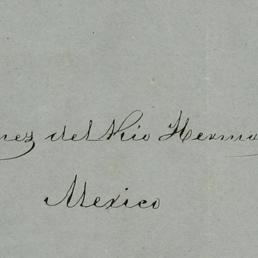 nez del Rio Herma
Mexico